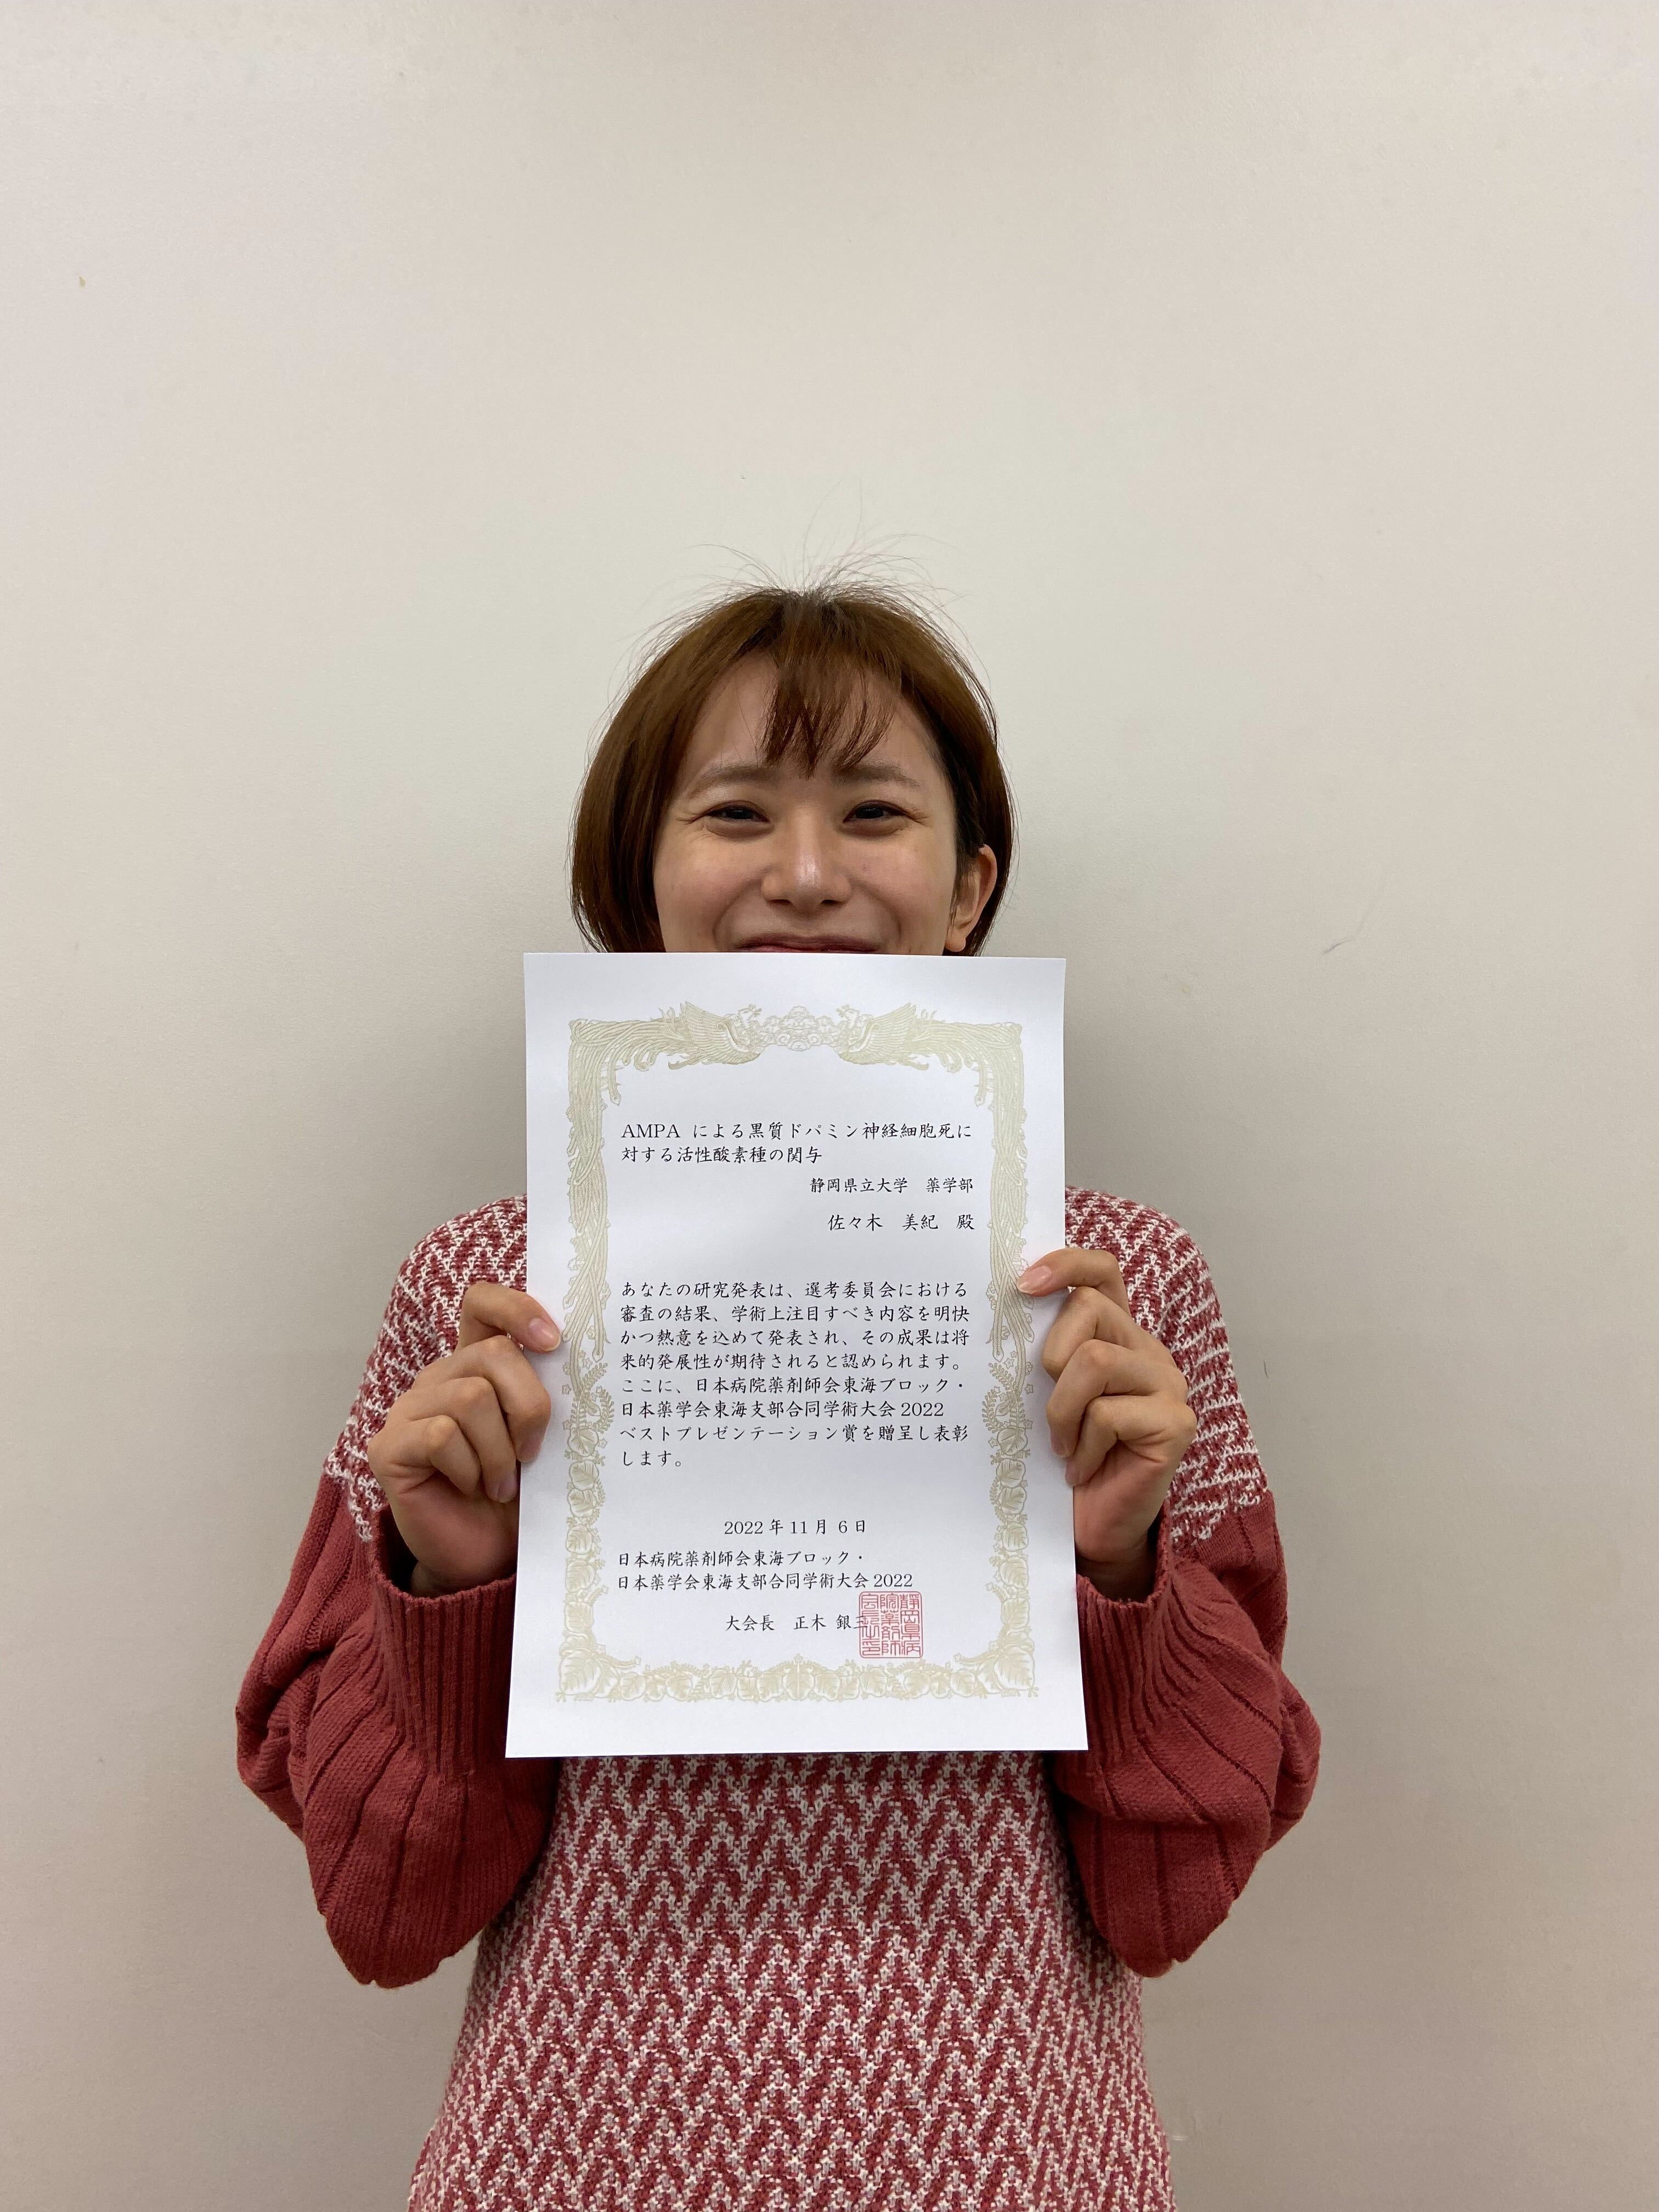 AMPA による黒質ドパミン神経細胞死に
対する活性酸素種の関与
静岡県立大学　薬学部
佐々木　美紀　殿
あなたの研究発表は、選考委員会における
審査の結果、学術上注目すべき内容を明快
かつ熱意を込めて発表され、その成果は将
来的発展性が期待されると認められます。
ここに、日本病院薬剤師会東海ブロック・
日本薬学会東海支部合同学術大会 2022
ベストプレゼンテーション賞を贈呈し表彰
します。
2022 年 11 月 6 日
日本病院薬剤師会東海ブロック・
日本薬学会東海支部合同学術大会 2022
大会長　正木 銀三
静岡県病
院薬剤師
会長之印